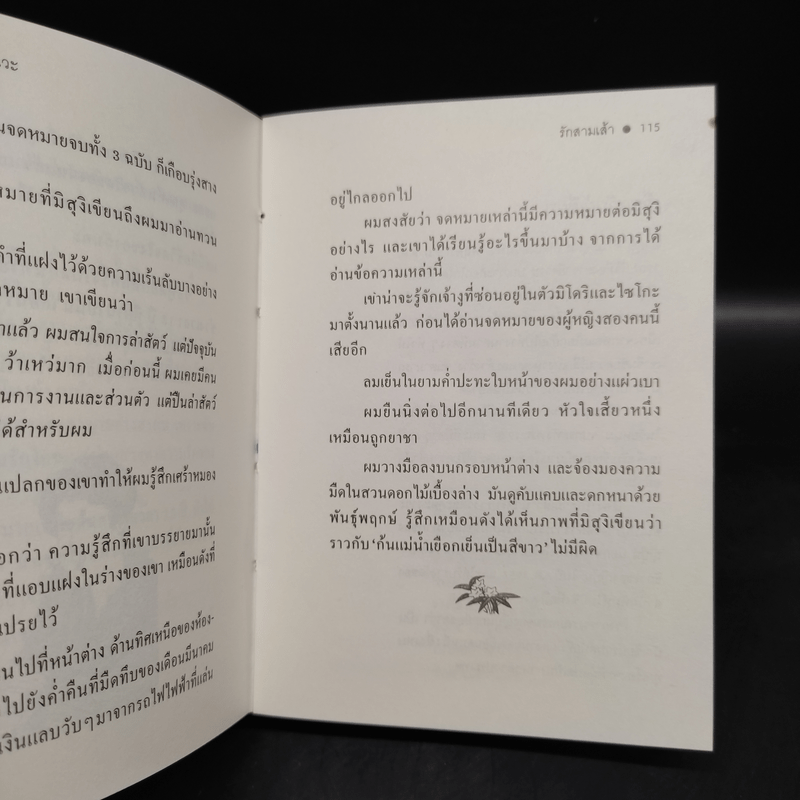 วะ
นจดหมายจบทั้ง 3 ฉบับ ก็เกือบรุ่งสาง
หมายที่มิสุงิเขียนถึงผมมาอ่านทวน
ำที่แฝงไว้ด้วยความเร้นลับบางอย่าง
ดหมาย เขาเขียนว่า
าแล้ว ผมสนใจการล่าสัตว์ แต่ปัจจุบัน
ว้าเหว่มาก เมื่อก่อนนี้ ผมเคยมีคน
นการงานและส่วนตัว แต่ปืนล่าสัตว์
ได้สำหรับผม
แปลกของเขาทำให้ผมรู้สึกเศร้าหมอง
อกว่า ความรู้สึกที่เขาบรรยายมานั้น
ที่แอบแฝงในร่างของเขา เหมือนดังที่
เปรยไว้
นไปที่หน้าต่าง ด้านทิศเหนือของห้อง-
ไปยังค่ำคืนที่มืดทึบของเดือนมีนาคม
งินแลบวับๆมาจากรถไฟไฟฟ้าที่แล่น
รักสามเส้า ● 115
อยู่ไกลออกไป
ผมสงสัยว่า จดหมายเหล่านี้มีความหมายต่อมิสุงิ
อย่างไร และเขาได้เรียนรู้อะไรขึ้นมาบ้าง จากการได้
อ่านข้อความเหล่านี้
เขาน่าจะรู้จักเจ้างูที่ซ่อนอยู่ในตัวมิโดริและไซโกะ
มาตั้งนานแล้ว ก่อนได้อ่านจดหมายของผู้หญิงสองคนนี้
เสียอีก
ลมเย็นในยามค่ำปะทะใบหน้าของผมอย่างแผ่วเบา
ผมยืนนิ่งต่อไปอีกนานทีเดียว หัวใจเสี้ยวหนึ่ง
เหมือนถูกยาชา
ผมวางมือลงบนกรอบหน้าต่าง และจ้องมองความ
มืดในสวนดอกไม้เบื้องล่าง มันดูคับแคบและดกหนาด้วย
พันธุ์พฤกษ์ รู้สึกเหมือนดังได้เห็นภาพที่มิสุงิเขียนว่า
ราวกับ ‘ก้นแม่น้ำเยือกเย็นเป็นสีขาว’ ไม่มีผิด